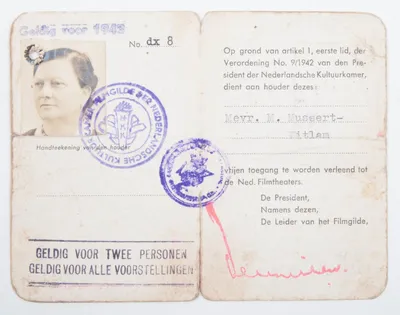 Geldig voor 1942
No. dx 8
Handtekening van den houder:
FILMGILDE DER NEDERLANDSCHE KULTUURKAMER
GELDIG VOOR TWEE PERSONEN
GELDIG VOOR ALLE VOORSTELLINGEN
Op grond van artikel 1, eerste lid, der
Verordening No. 9/1942 van den Pre-
sident der Nederlandsche Kultuurkamer,
dient aan houder dezes:
Mevr. M. Mussert-
Witlam
vrijen toegang te worden verleend tot
de Ned. Filmtheaters.
De President,
Namens dezen,
De Leider van het Filmgilde,